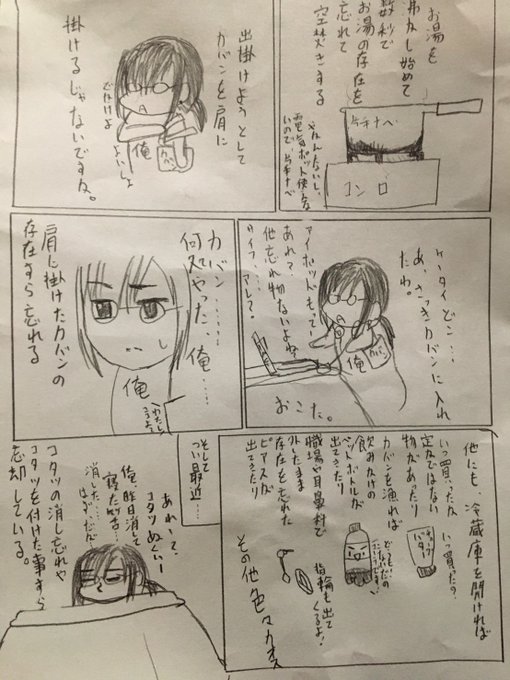 お湯を
沸かし始めて
数秒で
お湯の存在を
忘れて
空焚きする
片手ナベ
コンロ
電気ポット使えな
いので、片手ナベ
出掛けようとして
カバンを肩に
掛けるじゃないですな。
でかけよ
俺
よいしょ
ケータイどこ…
あ、さっきカバンに入れ
たわ。
アイポッドもってー
あれ？
他忘れ物ないよね
俺
おこた。
カバン……
何処やった、俺……
俺
肩に掛けたカバンの
存在すら忘れる
他にも、冷蔵庫を開ければ
いつ買ったか
定かではない
物があったり
いつ買ったの？
カバンを漁れば
飲みかけの
ペットボトルが
出てきたり
職場や耳鼻科で
外したまま
存在を忘れた
ピアスが
出てきたり
指輪も出て
くるよ！
その他色々カオス
そして
つい最近…
あれ〜？て、
コタツぬくいー
俺、昨日消して
寝た筈…
消した……はず…だが
コタツの消し忘れや
コタツを付けた事すら
忘却している。